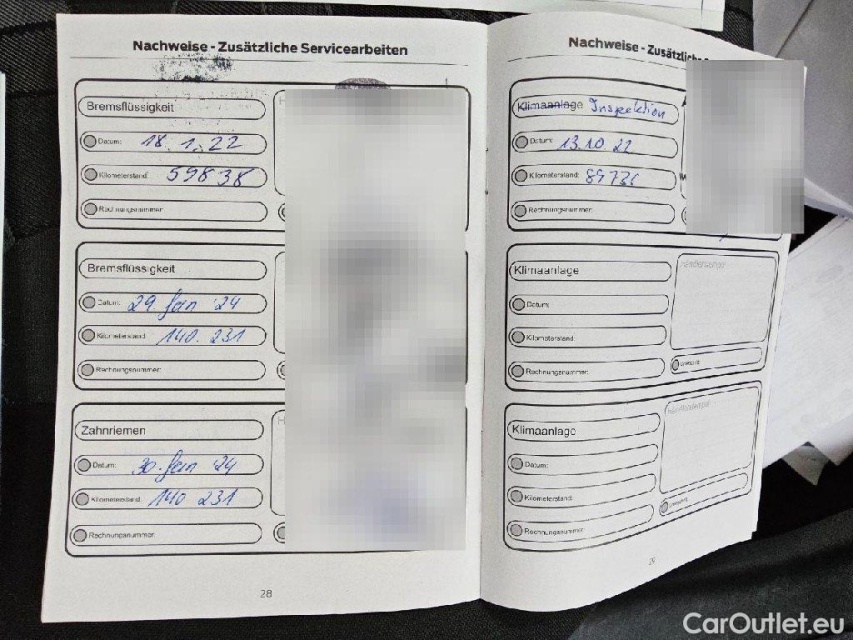 Nachweise - Zusätzliche Servicearbeiten
Bremsflüssigkeit
Datum: 18.1.22
Kilometerstand: 59838
Rechnungsnummer:
Bremsflüssigkeit
Datum: 29 Jan '24
Kilometerstand: 140.231
Rechnungsnummer:
Zahnriemen
Datum: 30. Jan '24
Kilometerstand: 140 231
Rechnungsnummer:
28
Nachweise - Zusätzliche
Klimaanlage Inspektion
Datum: 13.10.22
Kilometerstand:
Rechnungsnummer:
Klimaanlage
Datum:
Kilometerstand:
Rechnungsnummer:
Händlerstempel
Klimaanlage
Datum:
Kilometerstand:
Rechnungsnummer:
Händlerstempel
29
CarOutlet.eu